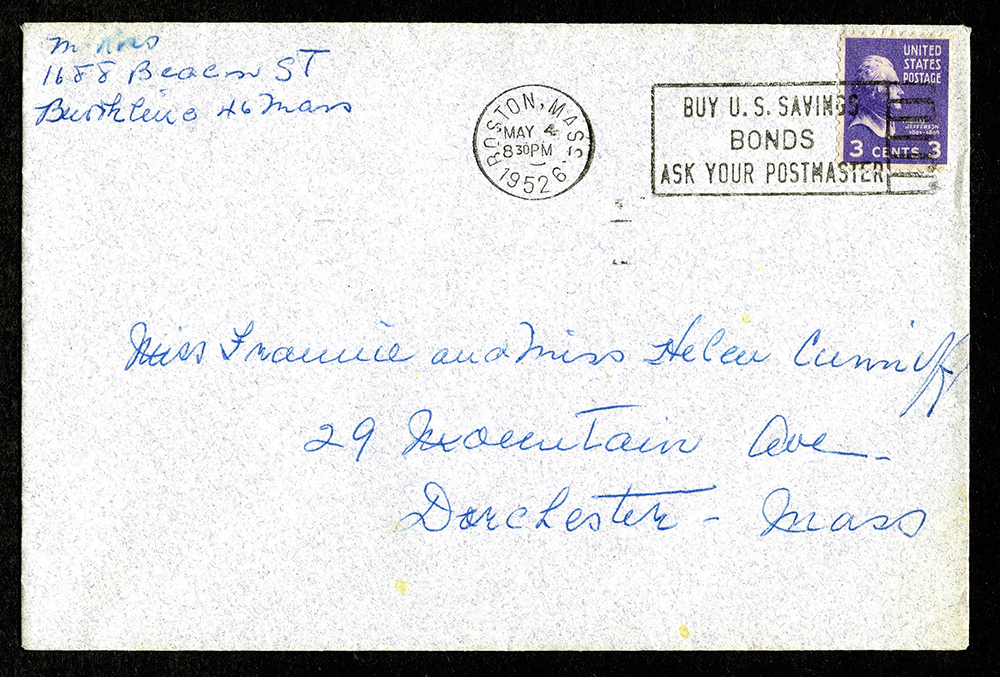 M Ross
1688 Beacon ST
Brookline 46 Mass
BOSTON, MASS.
MAY 4
8 30 PM
1952
6
BUY U.S. SAVINGS
BONDS
ASK YOUR POSTMASTER
UNITED
STATES
POSTAGE
JEFFERSON
1801-1809
3 CENTS 3
Miss Frannie and Miss Helen Cunniff
29 Mountain Ave.
Dorchester - Mass